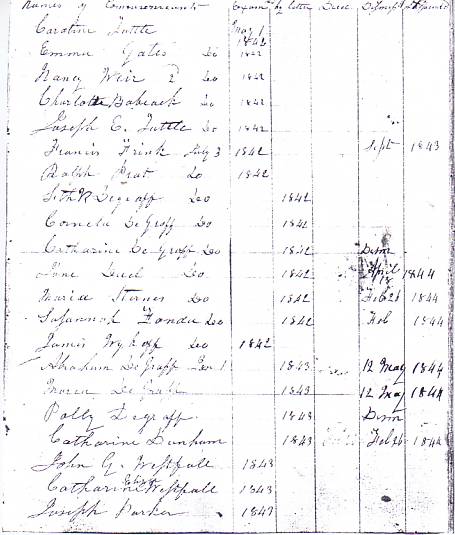 Names of Communicants Exam by letter Dec'd Dismis'd
Caroline Tuttle May 1 1842
Emma Gates Do 1842
Nancy Weir 2 Do 1842
Charlotte Babcock Do 1842
Joseph E. Tuttle Do 1842
Francis Frink July 3 1842 Sept 1843
Ralph Prat Do 1842
Seth Degraff Do 1842
Cornelia De Groff Do 1842
Catharine De Groff Do 1842 Dism
Jane Do 1842 April 18 1844
Maria Sternes Do 1842 Feb 26 1844
Susannah Fonda Do 1842 Feb 1844
James Wyhoff Do 1842
Abraham De Graff Dec 1 1843 12 May 1844
Maria De Graff 1843 12 May 1844
Polly Degraff 1843 Dism
Catharine Dunham 1843 Feb 26 1844
John G. Westfall 1843
Catharine Westfall 1843
Joseph Parker 1843